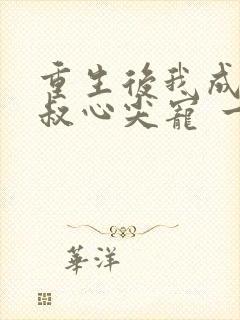 重生後我成
叔心尖寵 一
華洋